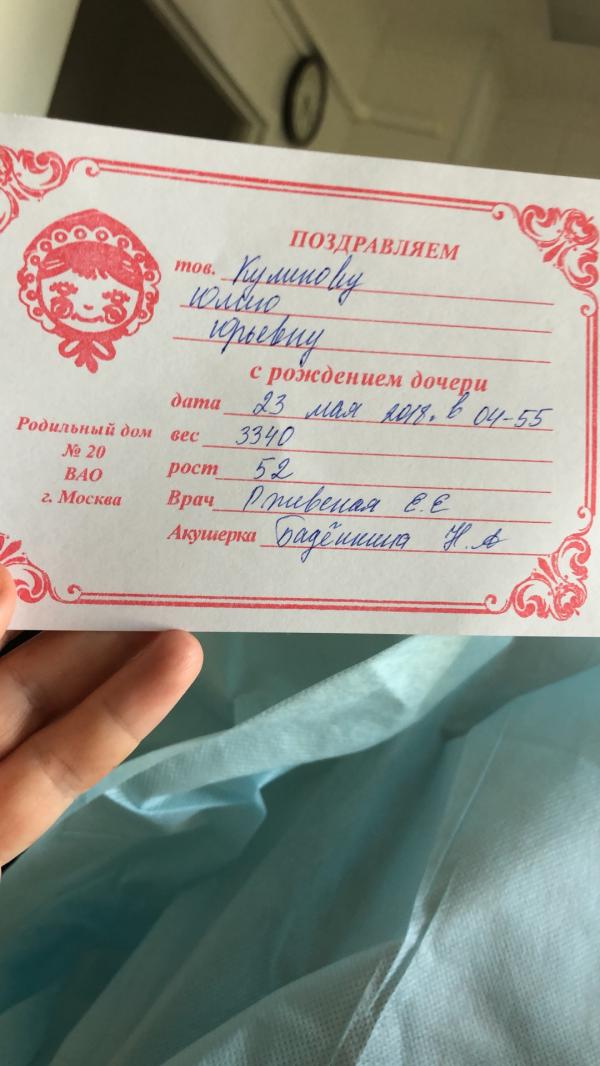 ПОЗДРАВЛЯЕМ
тов. Куликову
Юлию
Юрьевну
с рождением дочери
дата 23 мая 2018. в 04-55
вес 3340
рост 52
Врач Ржевская Е.Е
Акушерка Бадёнкина Н.А
Родильный дом
№ 20
ВАО
г. Москва